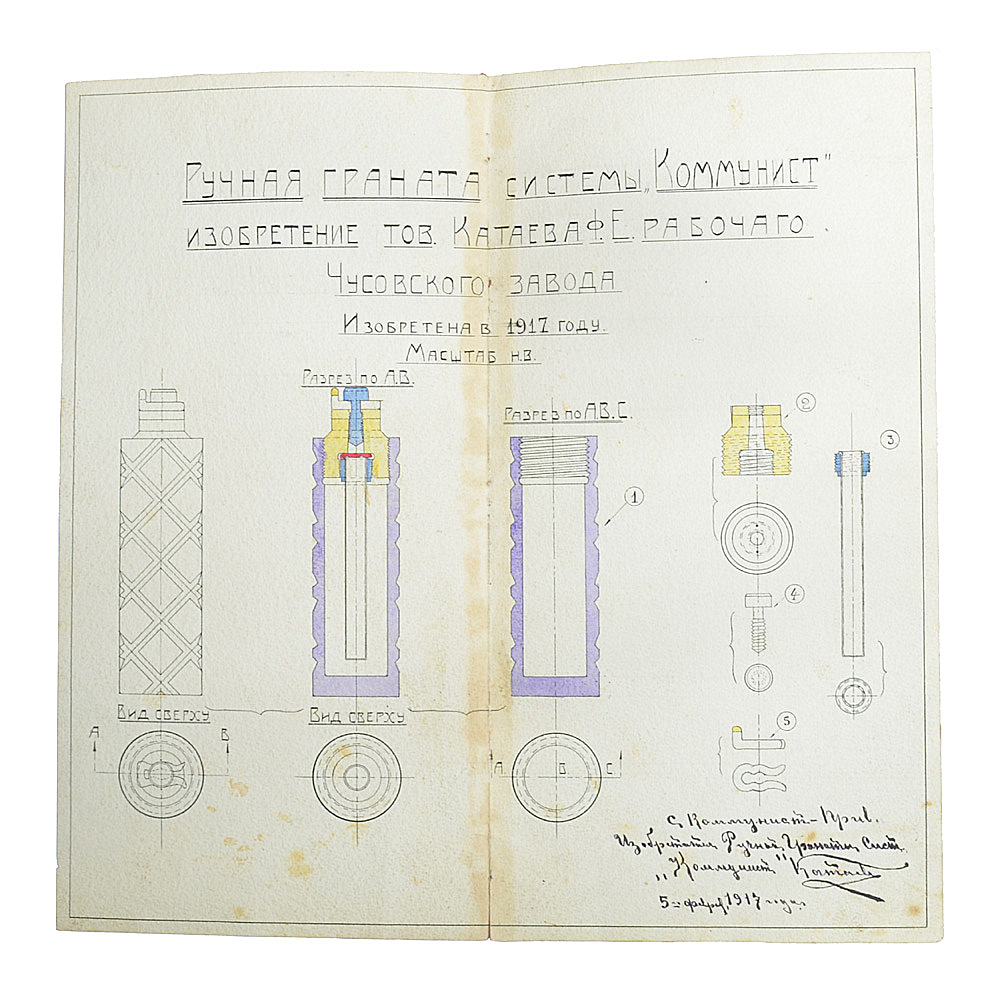 Ручная граната системы „Коммунист"
изобретение тов. Катаева Ф.Е. рабочаго
Чусовского завода
Изобретена в 1917 году.
Масштаб н.в.
Разрез по А.В.
Разрез по АВ.С.
1
2
3
4
5
Вид сверху
Вид сверху
А В
А. В. С.
с Коммунист-Прив.
Изобретатель Ручной Гранаты Сист.
„Коммунист" Катаев
5 февр. 1917 года